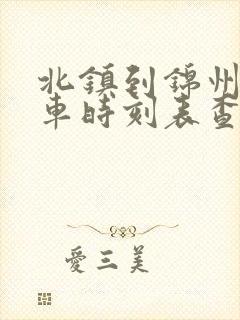 北鎮到錦州
車時刻表查
愛三美